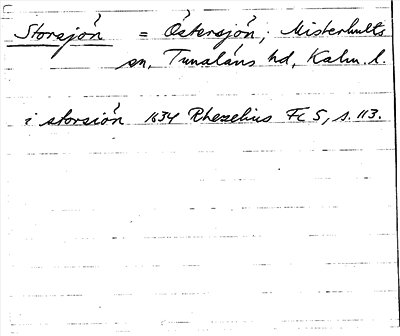 Storsjón = Östersjón, Misterhults
sn, Tunaláns hd, Kalm. l.
i storsión 1634 Rhezelius Fc 5, s. 113.